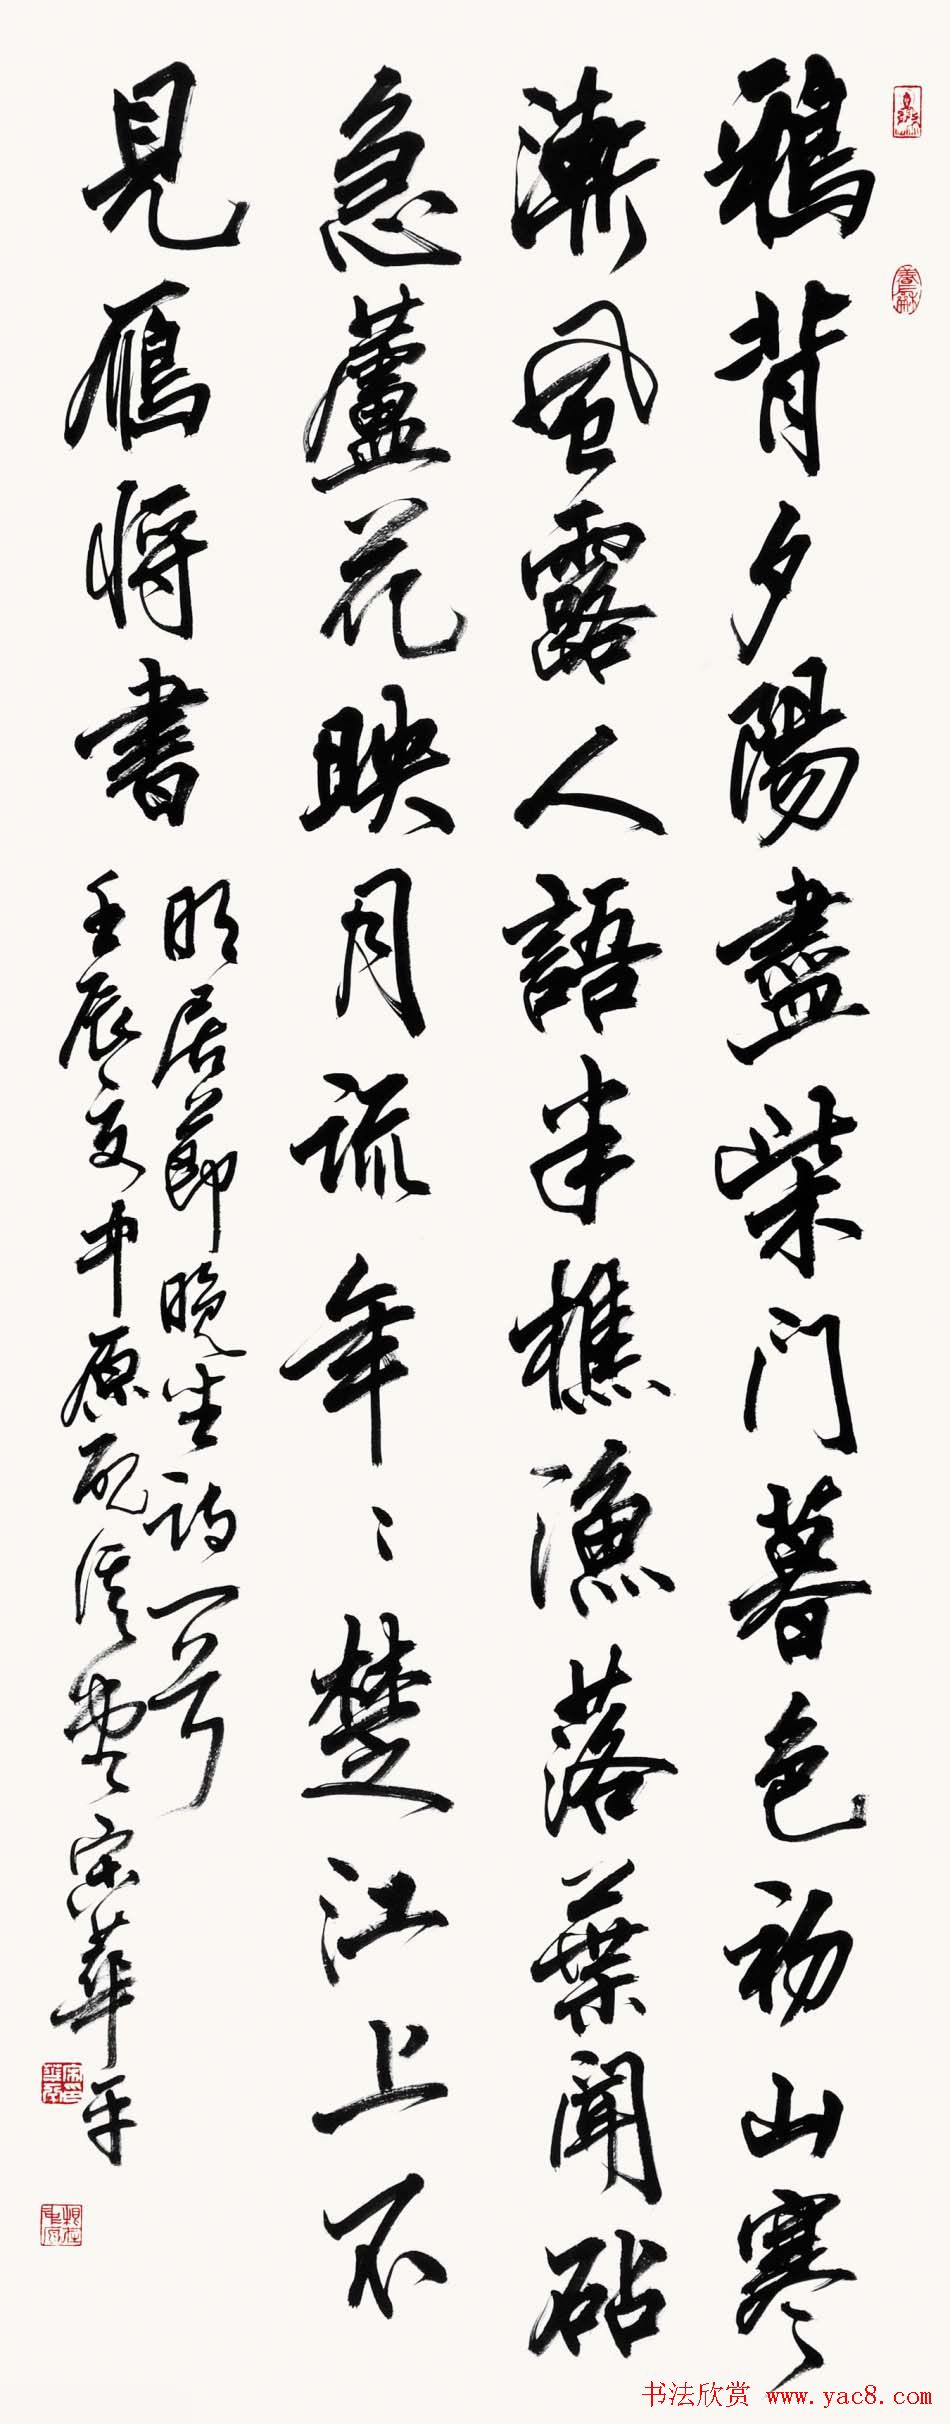 鴉背夕陽盡柴門暮色初山寒
漸風露人語半樵漁落葉聞砧
急蘆花映月疏年々楚江上不
見鴈將書
明居節晚坐詩一首
壬辰夏中原 宋華平
书法欣赏 www.yac8.com